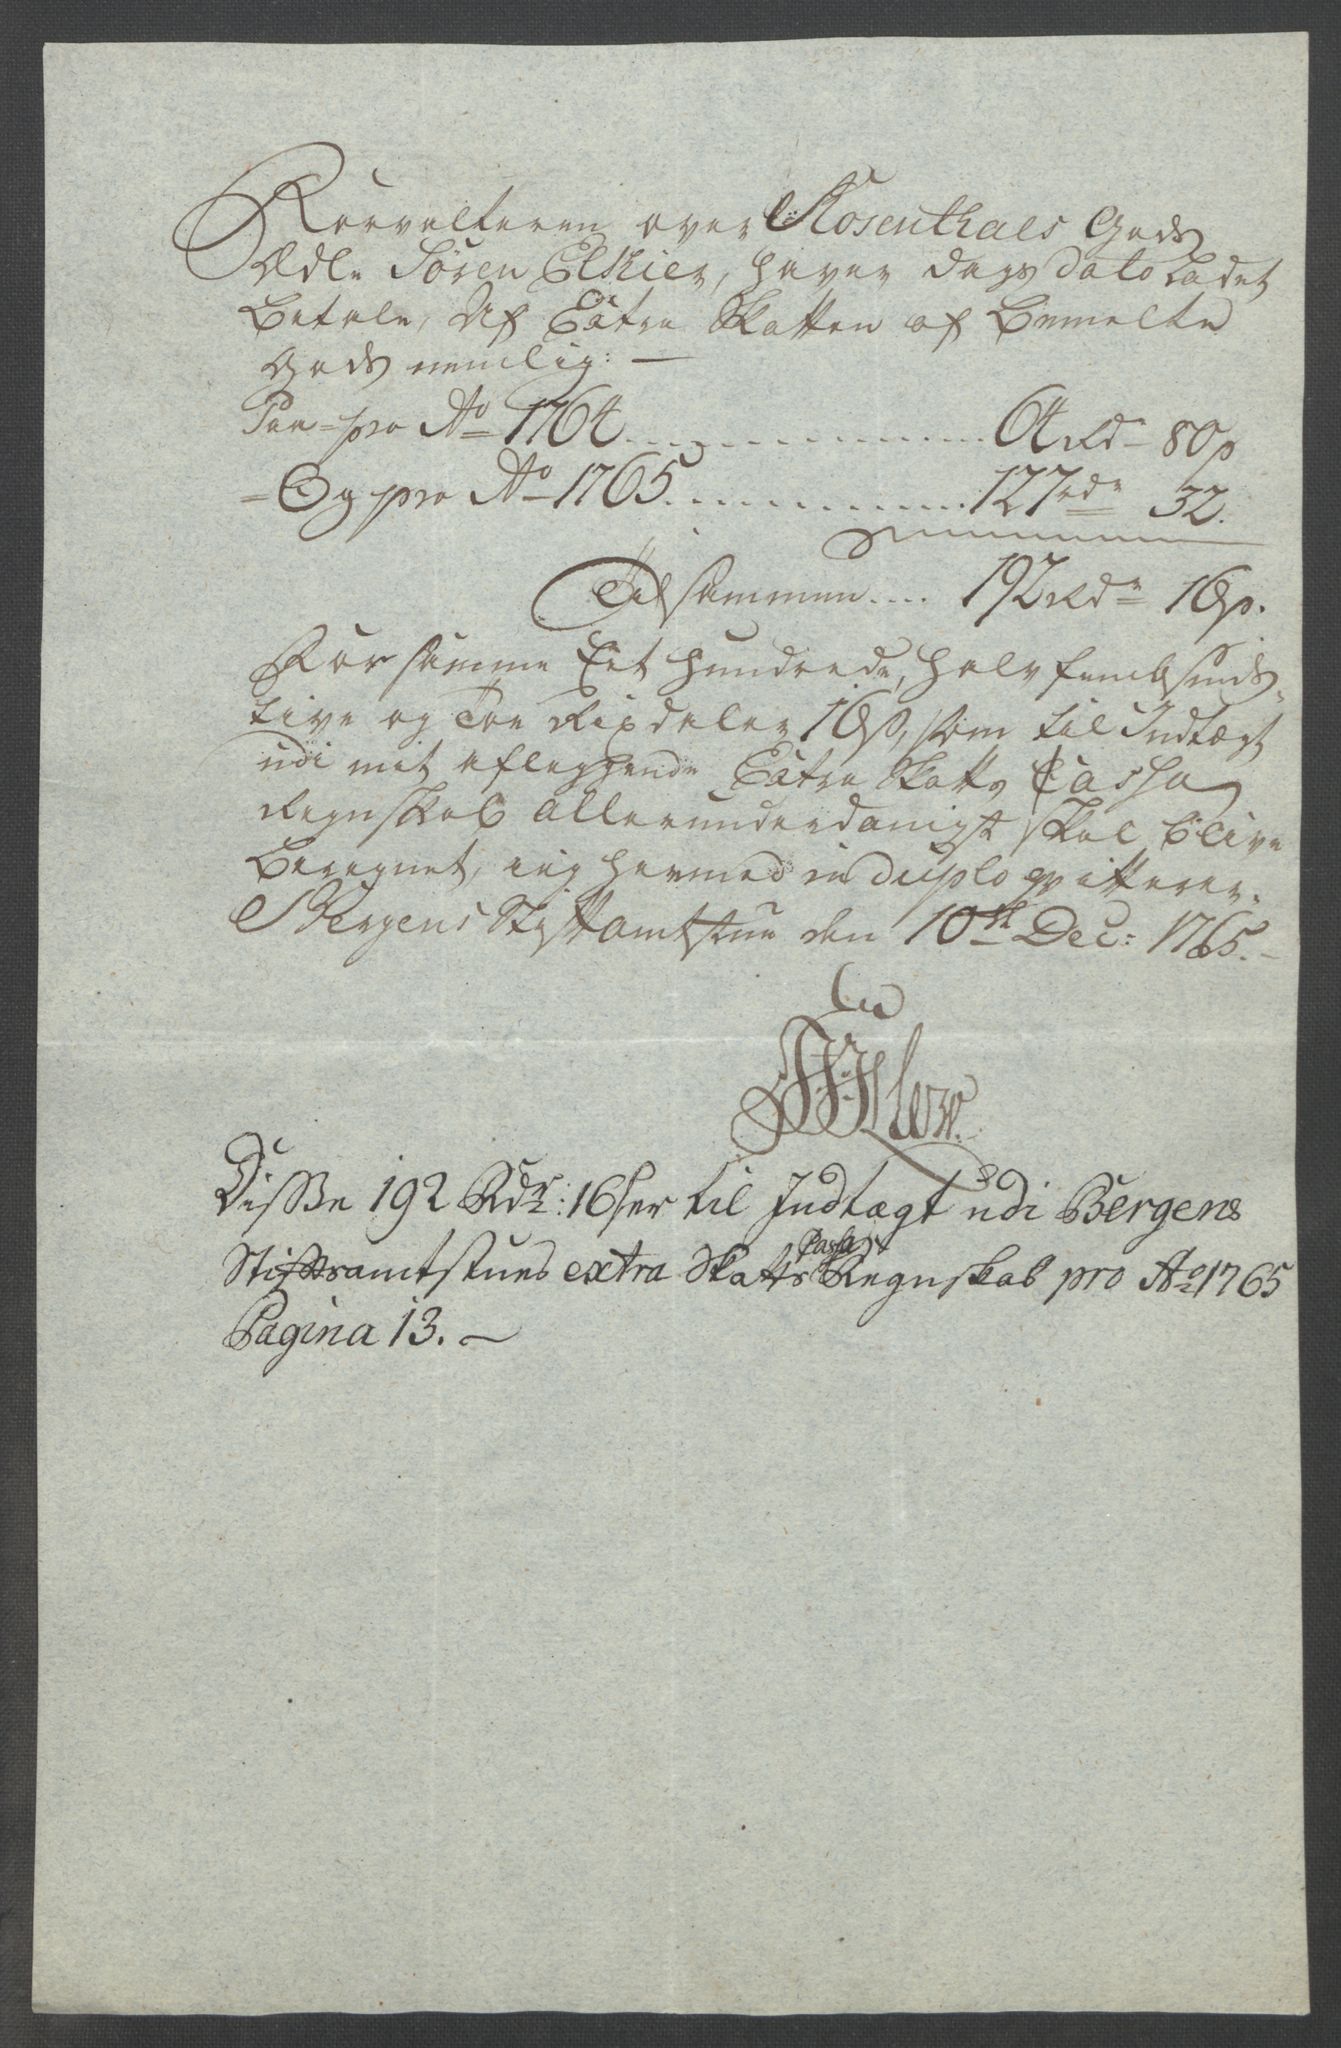 Forvalteren over Rosenthals Gods
Ædle Søren Elkier, haver Dags dato ladet
Betale, Af Extra Skatten af Bemelte
Gods nemlig: —
pro Ao 1764 ............ 64 Rd 80 s
= Og pro Ao 1765 ............ 127 rdr 32.
Tilsammen .... 192 Rdr 16 s.
For samme Eet Hundrede, Halvfembsinds-
tive og Toe Rixdaler 16 s, som til Indtægt
udi mit aflæggende Extra Skatts Cassa
Regnskab allerunderdanigst skal blive
Beregnet, ieg hermed in duplo qvitterer.
Bergens Stiftamtstue den 10de Dec: 1765. —
Disse 192 Rdr: 16 s er til Indtægt udi Bergens
Stiftsamtstues extra Skatts Cassa Regnskab pro Ao 1765
Pagina 13. —